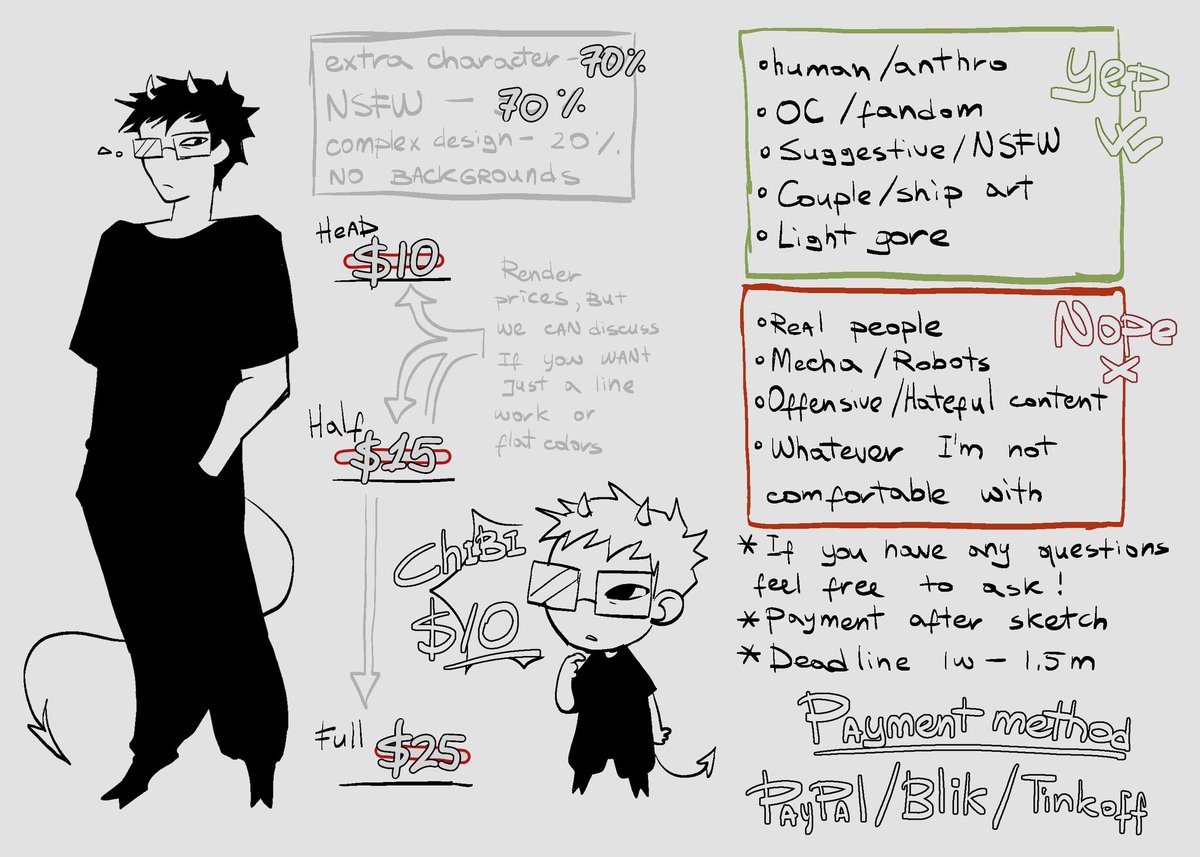 extra character - 70%
NSFW - 70%
complex design - 20%.
NO BACKGROUNDS
HeAD
$10
Render
prices, But
we CAN discuss
If you WANT
Just a line
work or
flat colors
Half
$15
ChiBI
$10
Full
$25
Yep
• human/anthro
• OC/fandom
• Suggestive/NSFW
• Couple/ship art
• Light gore
Nope
x
• ReAl people
• Mecha/Robots
• Offensive/Hateful content
• Whatever I'm not
comfortable with
* If you have any questions
feel free to ask!
* Payment after sketch
* Deadline 1w - 1.5m
PAyment method
PAyPAl/Blik/Tinkoff